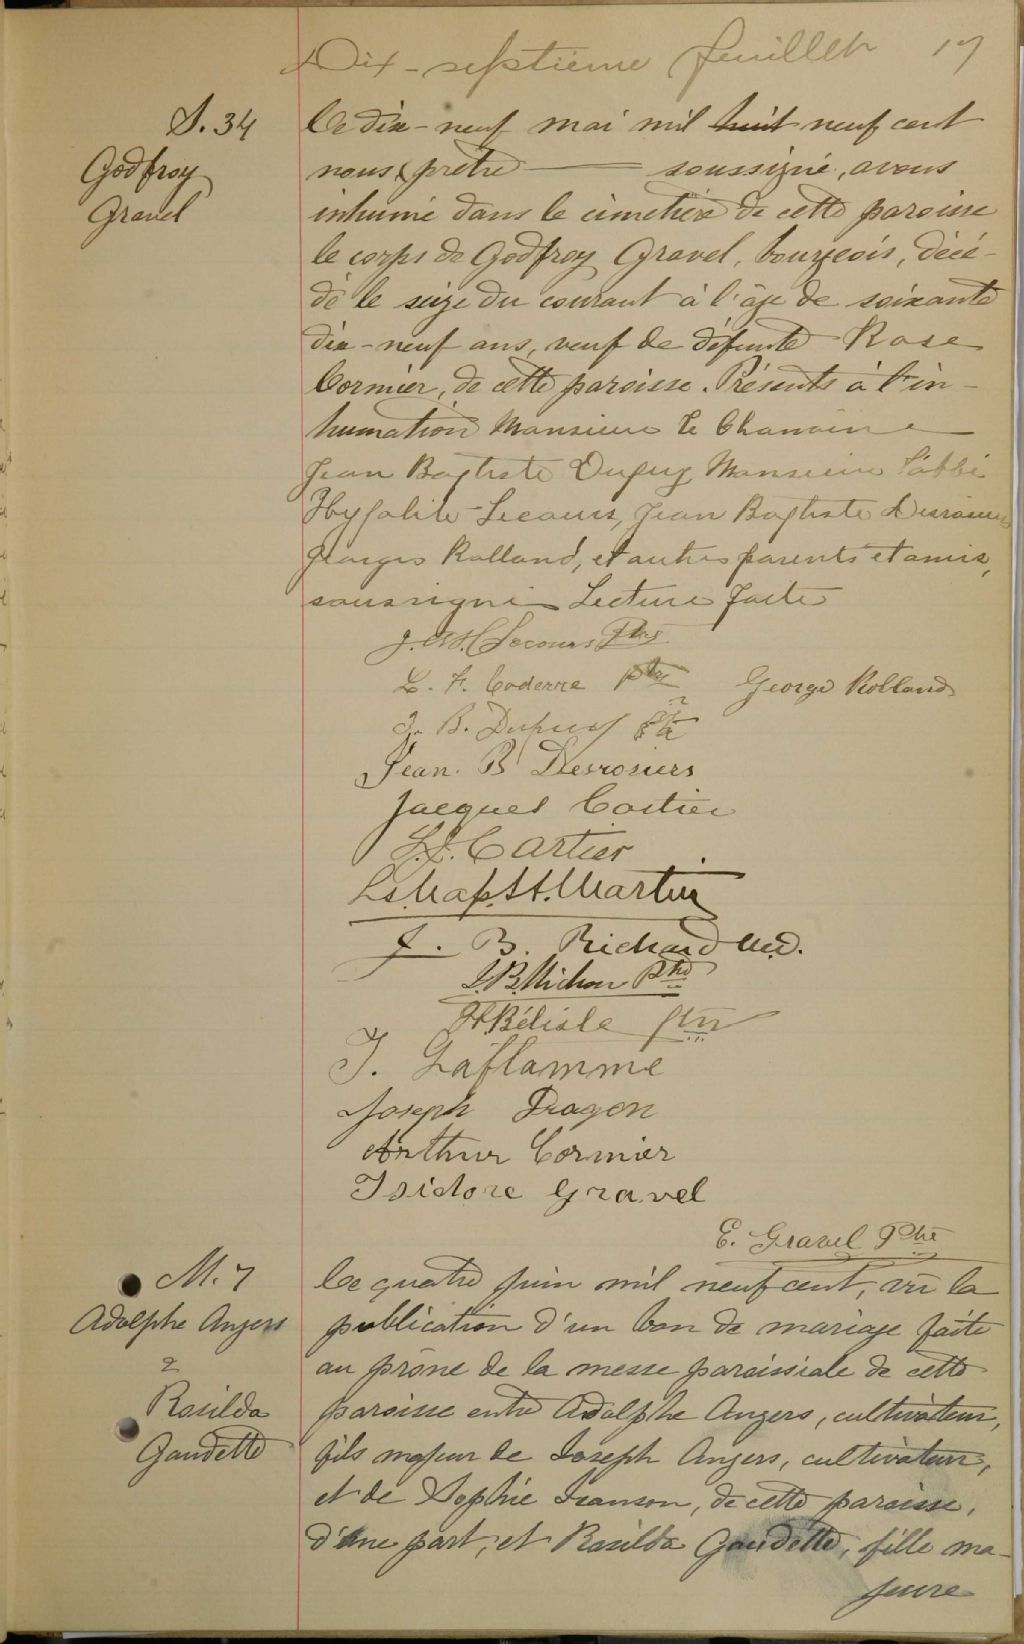 Dix-septième feuillet 17
S. 34
Godfroy
Gravel
Le dix-neuf mai mil huit neuf cent
nous prêtre soussigné, avons
inhumé dans le cimetière de cette paroisse
le corps de Godfroy Gravel, bourgeois, décé-
dé le seize du courant à l'âge de soixante
dix-neuf ans, veuf de défunte Rose
Cormier, de cette paroisse. Présents à l'in-
humation Monsieur le Chanoine
Jean Baptiste Dupuy, Monsieur l'abbé
Hypolite Lecours, Jean Baptiste Desrosiers
Georges Rolland, et autres parents et amis,
soussignés Lecture faite
Lecours Ptre
L. F. Coderre ptre George Rolland
J. B. Dupuy Ptre
Jean. B Desrosiers
Jacques Cartier
J. J. Cartier
St. Martin
J. B. Richard M.D.
J. B. Michon Ptre
H. Bélisle ptre
J. Laflamme
Joseph Dragon
Arthur Cormier
Isidore Gravel
E. Gravel Ptre
M. 7
Adolphe Angers
&
Rosilda
Gaudette
Le quatre juin mil neuf cent, vu la
publication d'un ban de mariage faite
au prône de la messe paroissiale de cette
paroisse entre Adolphe Angers, cultivateur,
fils majeur de Joseph Angers, cultivateur,
et de Sophie Leanson, de cette paroisse,
d'une part, et Rosilda Gaudette, fille ma-
jeure